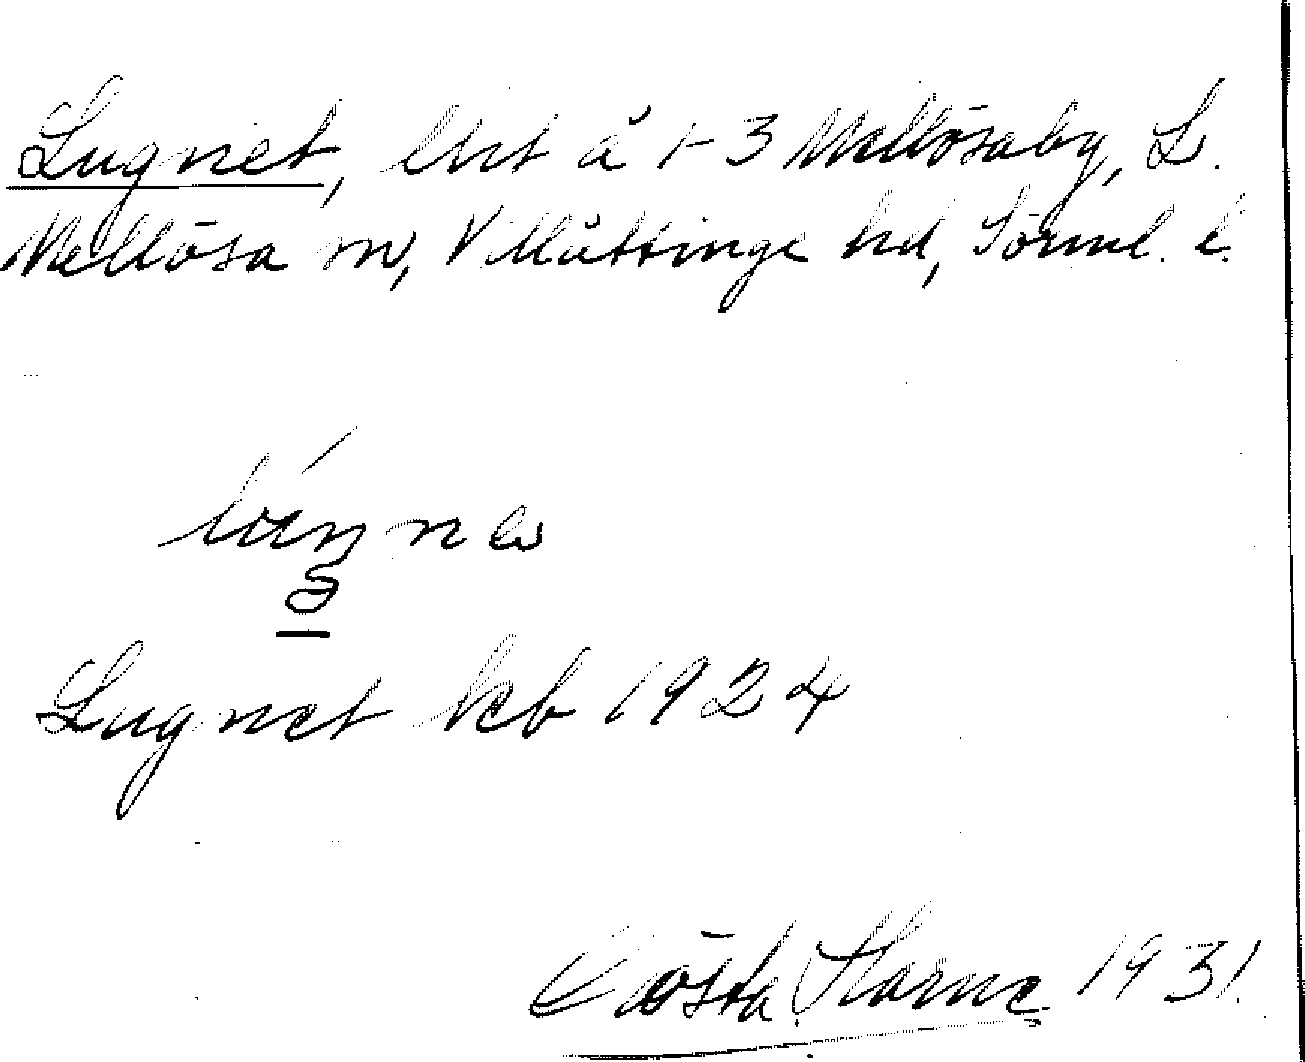 Lugnet, lht å 1-3 Mellösaby, L.
Mellösa sn, Villåttinge hd, Sörml. l.
Lugnet kb 1924
Gösta 1931.